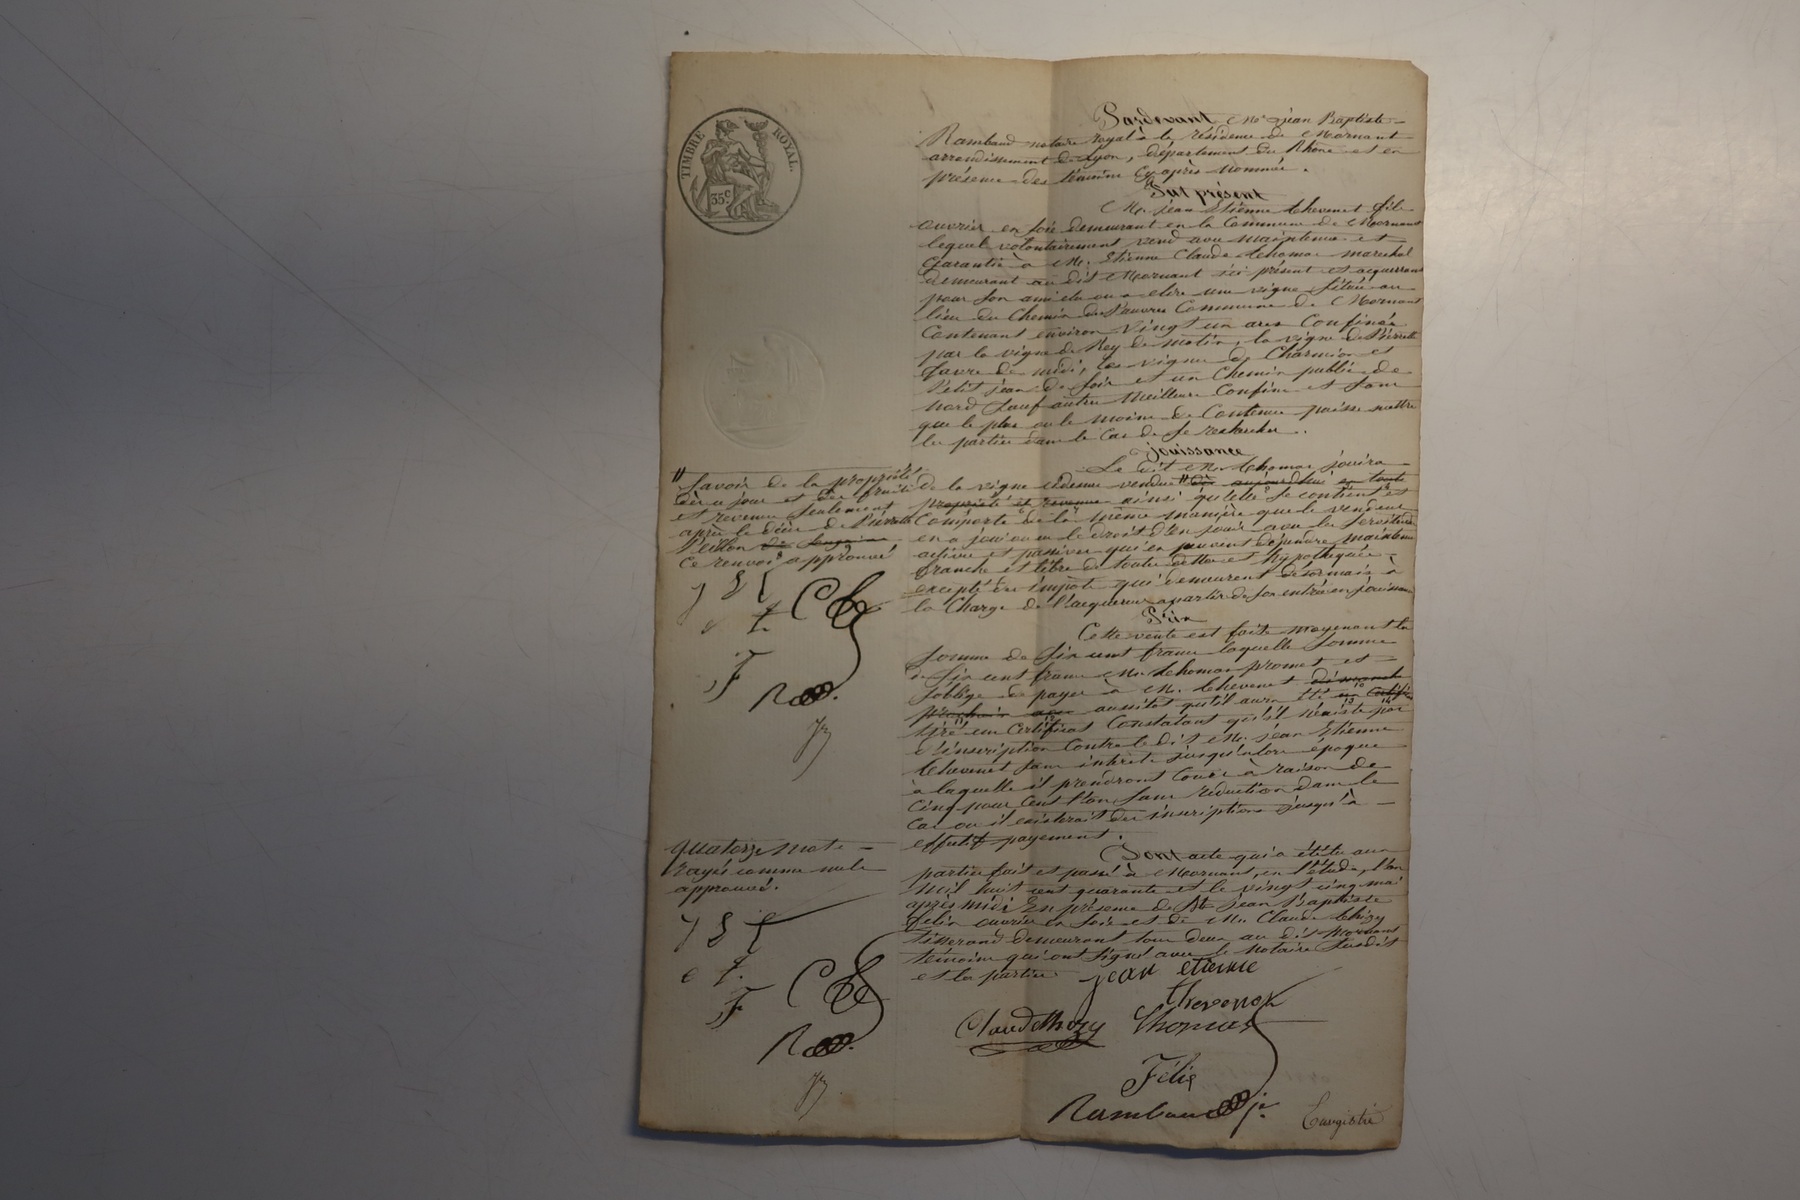 TIMBRE ROYAL
35 C.
Pardevant Me jean Baptiste
Rambaud notaire royal à la résidence de Mornant
arrondissement de Lyon, département du Rhône et en
présence des témoins cy après nommés.
Fut présent
Mr. jean Etienne thevenet fils
ouvrier en soie demeurant en la Commune de Mornant
lequel volontairement vend avec maintenue et
Garantie à Mr. Etienne Claude thomas marechal
demeurant au dit Mornant ici présent et acquerrant
pour son ami élu ou a elire une vigne située au
lieu du Chemin des Pauvres Commune de Mornant
Contenant environ vingt un ares Confinée
par la vigne de Rey de matin, la vigne de Pierre
favre de midi, les vignes de Charmion et
Petit jean de soir et un Chemin public de
nord sauf autres meilleurs Confins et sans
que le plus ou le moins de Contenue puisse mettre
les parties dans le Cas de se rechercher.
jouissance
Le dit Mr. thomas jouira
de la vigne cidessus vendue " dès aujourdhui en toute
propriété et revenus ainsi qu'elle se contient et
Comporte de la même manière que le vendeur
en a joui ou eu le droit d'en jouir avec les servitudes
actives et passives qui en peuvent dépendre maintenue
franche et libre de toutes dettes et hypothèques
excepté des impots qui demeurent désormais à
la Charge de l'acquereur a partir de son entrée en jouissance
" Savoir de la propriété
dès ce jour et des fruits
et revenus seulement
après le décès de Pierrette
Peillon
Ce renvoi approuvé
j E t
C th
F
R
Prix
Cette vente est faite moyenant la
somme de six cent francs laquelle somme
de six cent francs Mr. thomas promet et
s'oblige de payer à Mr. thevenet
prochain aussitot qu'il aura été un Certificat
tiré un Certificat Constatant qu'il n'existe pas
d'inscription Contre le dit Mr. jean Etienne
thevenet sans intérêts jusqu'alors époque
à laquelle il prendront Cours à raison de
Cinq pour Cent l'an sans reduction dans le
Cas ou il existerait des inscriptions jusqu'à
effectif payement.
quatorze mots
rayés comme nuls
approuvé.
j E t
e t.
C th
F
R
Dont acte qui a été lu aux
parties fait et passé à Mornant, en l'étude, l'an
mil huit cent quarante et le vingt cinq mai
après midi En présence de Mr. jean Baptiste
félix ouvrier en soie et de Mr. Claude thizy
tisserand demeurant tous deux au dit Mornant
témoins qui ont signé avec le notaire susdit
et les parties
jean etienne
thevenet
Claude thizy thomas
Félix
Rambaud jne
Enregistré